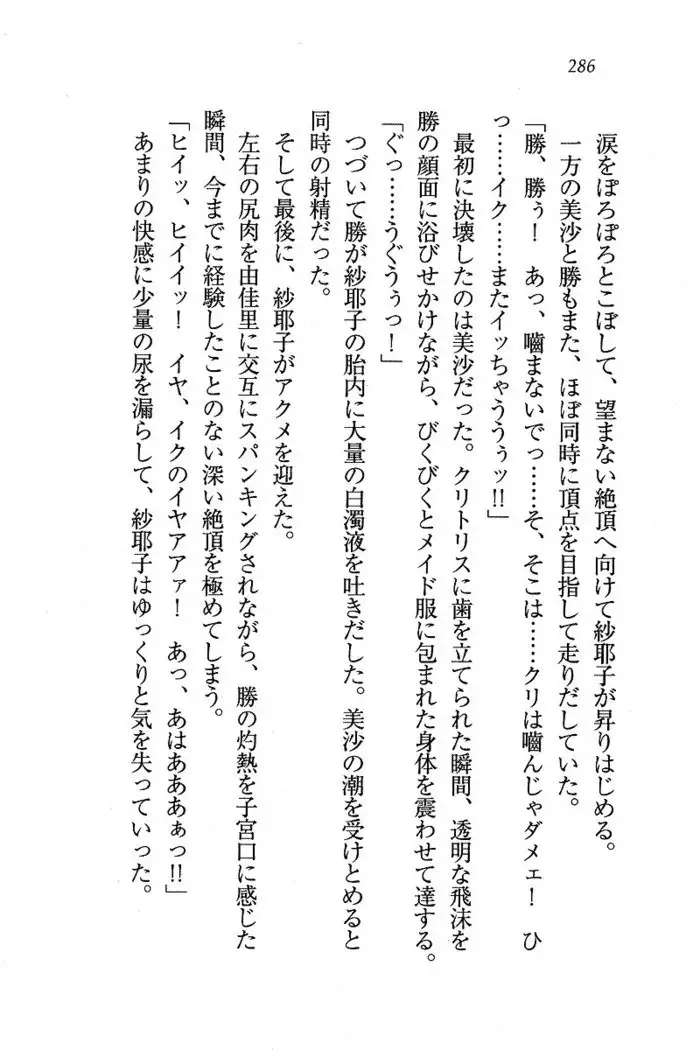 286
涙をぽろぽろとこぼして、望まない絶頂へ向けて紗耶子が昇りはじめる。
一方の美沙と勝もまた、ほぼ同時に頂点を目指して走りだしていた。
「勝、勝ぅ！　あっ、嚙まないでっ……そ、そこは……クリは嚙んじゃダメェ！　ひ
っ……イク……またイッちゃううぅッ!!」
最初に決壊したのは美沙だった。クリトリスに歯を立てられた瞬間、透明な飛沫を
勝の顔面に浴びせかけながら、びくびくとメイド服に包まれた身体を震わせて達する。
「ぐっ……うぐうぅっ！」
つづいて勝が紗耶子の胎内に大量の白濁液を吐きだした。美沙の潮を受けとめると
同時の射精だった。
そして最後に、紗耶子がアクメを迎えた。
左右の尻肉を由佳里に交互にスパンキングされながら、勝の灼熱を子宮口に感じた
瞬間、今までに経験したことのない深い絶頂を極めてしまう。
「ヒイッ、ヒイイッ！　イヤ、イクのイヤアアァ！　あっ、あはああぁっ!!」
あまりの快感に少量の尿を漏らして、紗耶子はゆっくりと気を失っていった。